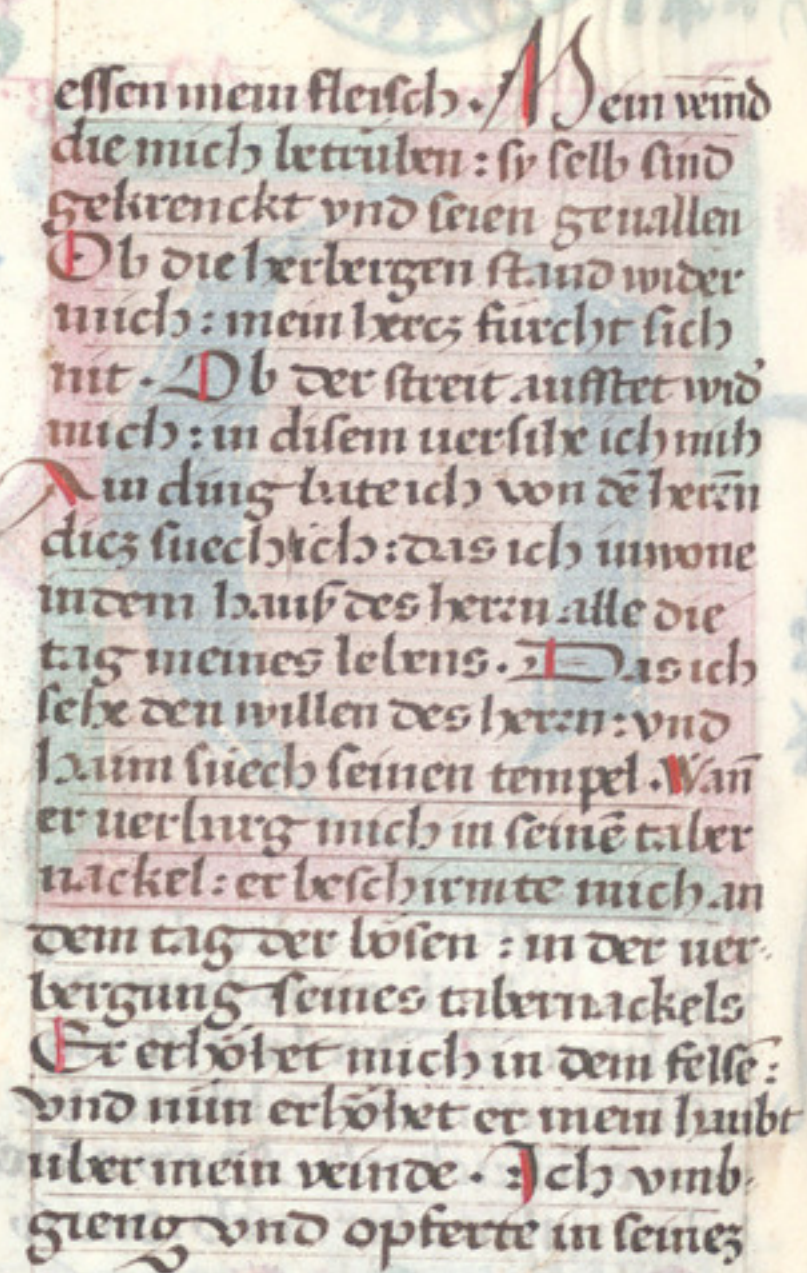 essen mein fleisch. Mein veind
die mich betrüben: sy selb sind
gekrenckt vnd seien geuallen
Ob die herbergen stand wider
mich: mein hercz fürcht sich
nit. Ob der streit aufstet wid'
mich: in disem uersihe ich mih
Ain ding bate ich von dē herrn
dicz suech ich: das ich inwone
in dem hauß des herrn alle die
tag meines lebens. Das ich
sehe den willen des herrn: vnd
haim süech seinen tempel. Wan̄
er uerbarg mich in seinē taber
nackel: er beschirmte mich an
dem tag der bösen: in der uer-
bergung seines tabernackels
Er erhöhet mich in dem felsē:
vnd nün erhöhet er mein haubt
uber mein veinde. Ich vmb-
gieng vnd opferte in seinez